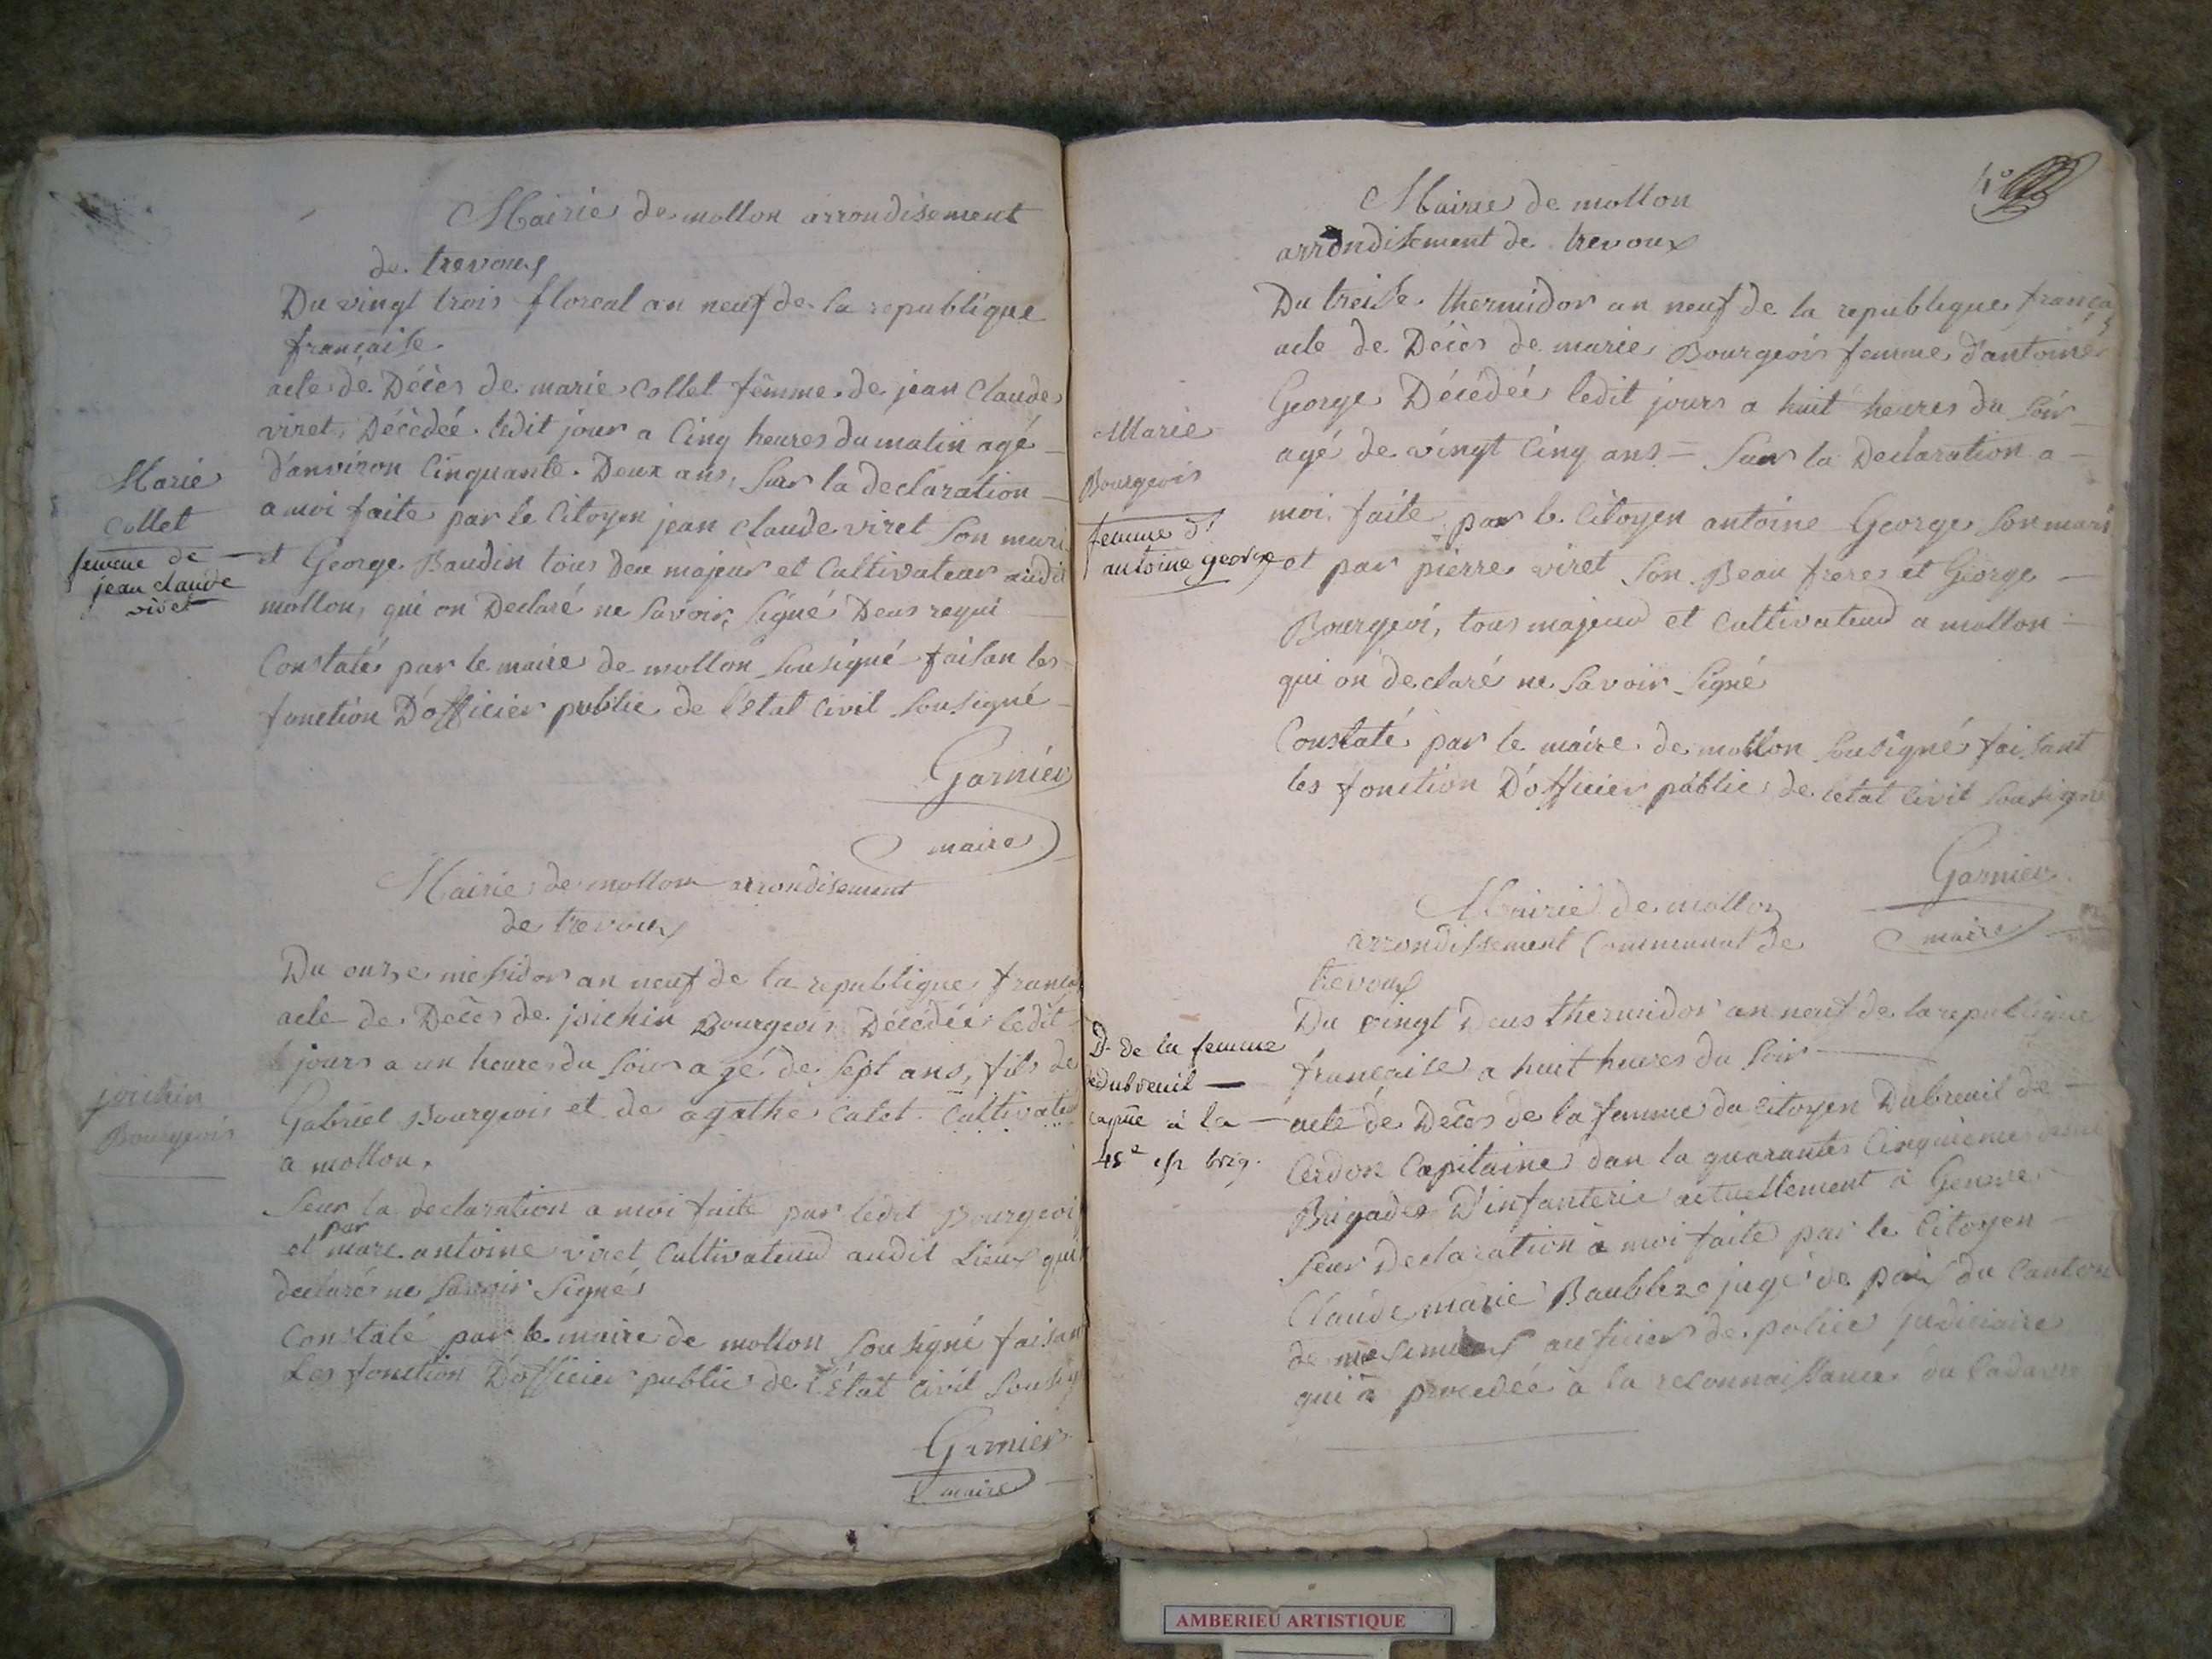 Mairie de mollon arrondisement
de trevoux
Du vingt trois floreal an neuf de la republique
francaise
acte de Décès de marie Collet femme de jean Claude
viret, Décédée ledit jour a Cinq heures du matin agé
d'anviron Cinquante Deux ans, Sur la declaration
a moi faite par le Citoyen jean Claude viret Son mari
et George Baudin tous deu majeur et Cultivateur audit
mollon, qui on Declaré ne Savoir Signé Deus requi
Constaté par le maire de mollon Sousigné faisan les
fonction D'officier public de l'état Civil Sousigné
Garnier
maire
Marie
Collet
femme de
jean claude
viret
Mairie de mollon arrondisement
de trevoux
Du onze messidor an neuf de la republique franca
acte de Décès de joichin Bourgeois Décédée ledit
jours a un heures du Soir agé de Sept ans, fils de
Gabriel Bourgeois et de agathe Catet Cultivateu
a mollon,
Seur la declaration a moi faite par ledit Bourgeois
et par marc antoine viret Cultivateur audit Lieux qui
declaré ne Savoir Signé
Constaté par le maire de mollon Sousigné faisan
Les fonction D'officier public de l'État Civil Sousig
Garnier
maire
joichin
Bourgeois
Mairie de mollon
arrondisement de trevoux
Du treise thermidor an neuf de la republique franca
acte de Décès de marie Bourgeois femme d'antoine
George Décédée ledit jours a huit heures du Soir
agé de vingt Cinq ans = Sur la Declaration a
moi faite par le Citoyen antoine George Son mari
et par pierre viret Son Beau frere et George
Bourgeoi, tous majeur et Cultivateur a mollon
qui on declaré ne Savoir Signé
Constaté par le maire de mollon Sousigné faisant
les fonction D'officier public de létat Civil Sousigné
Garnier
maire
Marie
Bourgeois
femme d'
antoine george
Mairie de mollon
arrondissement Communal de
trevoux
Du vingt Deus thermidor an neuf de la republique
francaise a huit heures du Soir
acte de Décès de la femme du Citoyen Dubreuil de
Cerdon Capitaine dan la quarante Cinquieme demi
Brigades D'infanterie actuellement à Genne
Seur Declaration à moi faite par le Citoyen
Claude marie juge de paix du Canton
de auficier de police judiciaire
qui à procedée à la reconnaissance du Cadavre
D. de la femme
dubreuil
capne à la
45e brig.